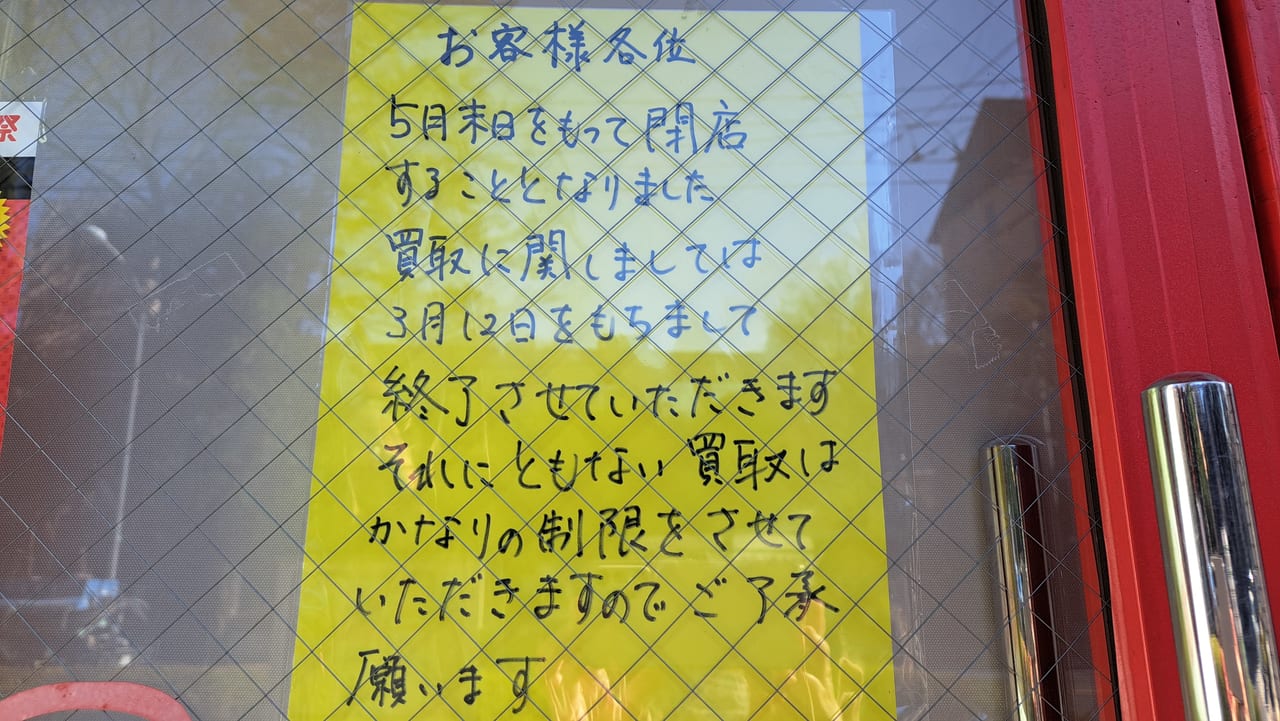 お客様各位
5月末日をもって閉店
することとなりました
買取に関しましては
3月12日をもちまして
終了させていただきます
それにともない買取は
かなりの制限をさせて
いただきますのでご了承
願います
祭